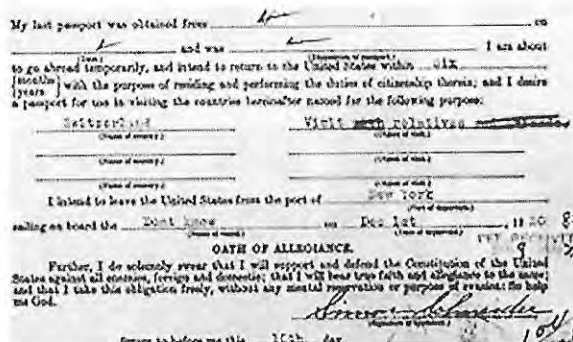 My last passport was obtained from on
and was I am about
(Date.) (Disposition of passport.)
to go abroad temporarily, and intend to return to the United States within six
{months
{years } with the purpose of residing and performing the duties of citizenship therein; and I desire
a passport for use in visiting the countries hereinafter named for the following purpose:
Switzerland Visit relatives
(Name of country.) (Object of visit.)
(Name of country.) (Object of visit.)
(Name of country.) (Object of visit.)
I intend to leave the United States from the port of New York
(Port of departure.)
sailing on board the Dont know on Dec 1st, 19 20
(Name of vessel.) (Date of departure.)
OATH OF ALLEGIANCE.
Further, I do solemnly swear that I will support and defend the Constitution of the United
States against all enemies, foreign and domestic; that I will bear true faith and allegiance to the same;
and that I take this obligation freely, without any mental reservation or purpose of evasion: So help
me God.
(Signature of applicant.)
Sworn to before me this 15th day